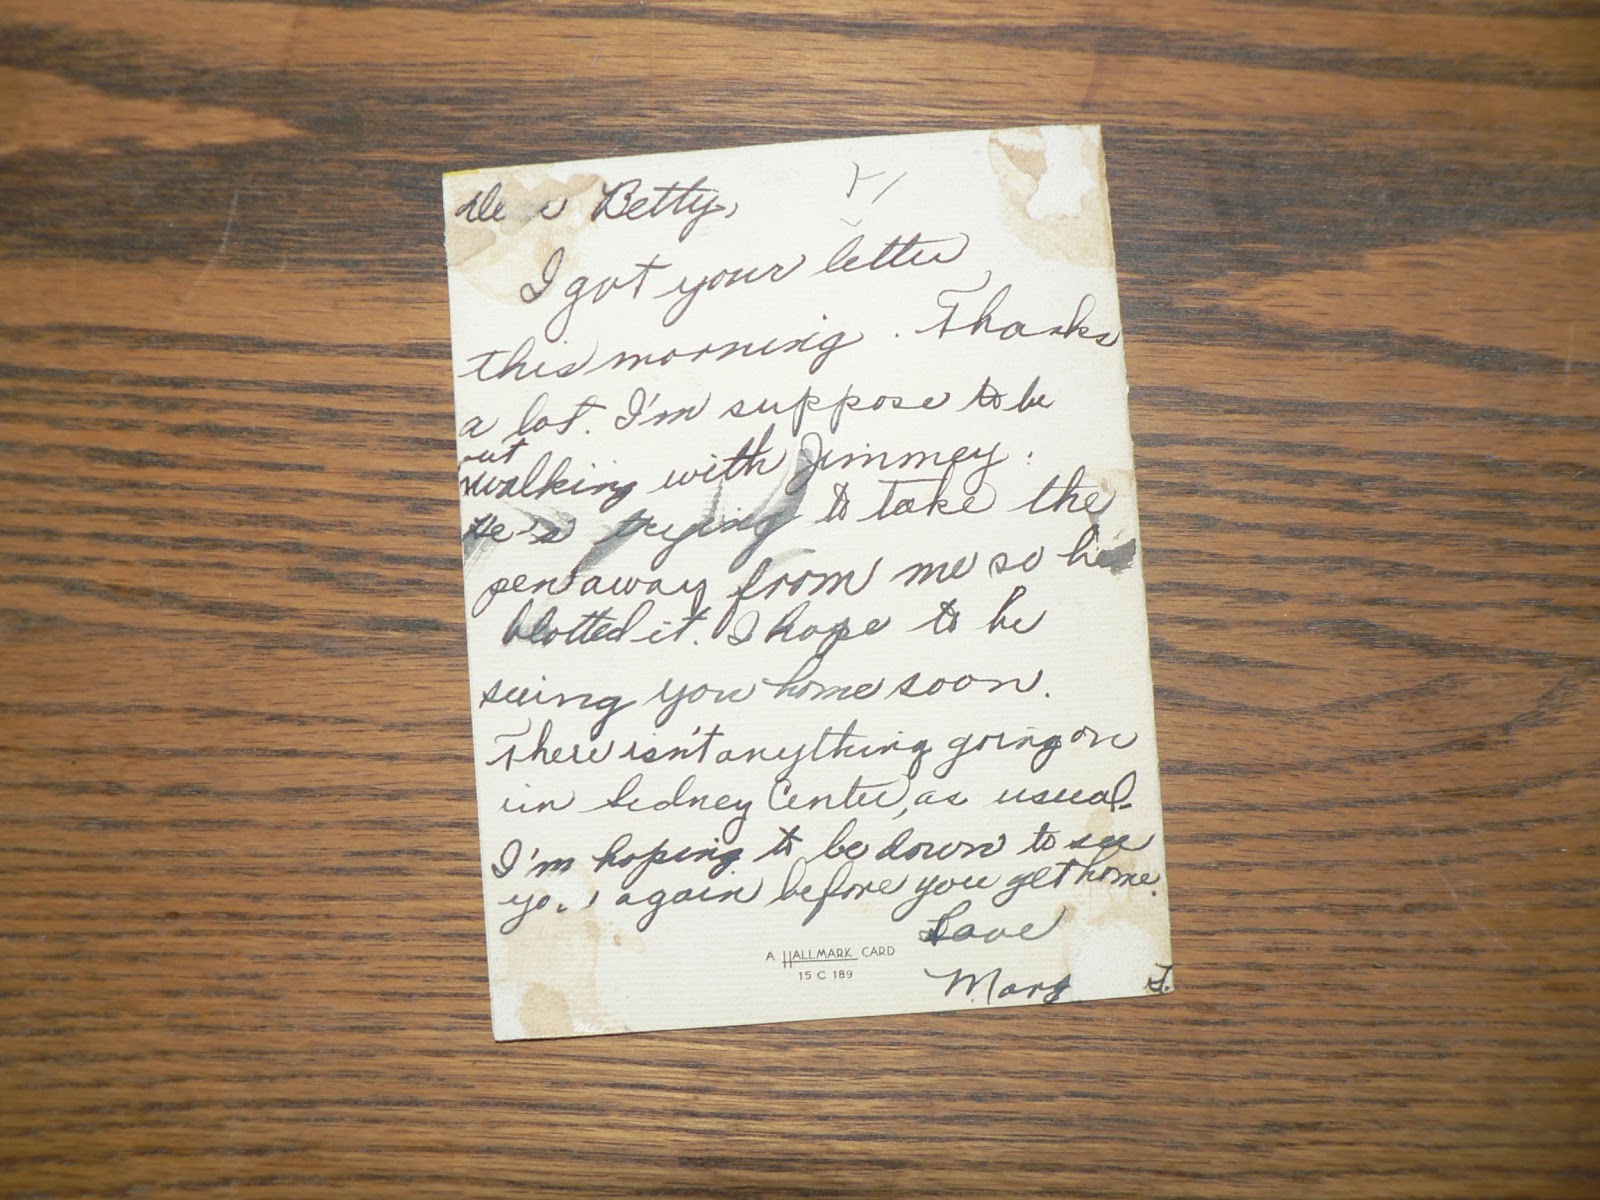 Dear Betty,
I got your letter
this morning. Thanks
a lot. I'm suppose to be
out
walking with Jimmey.
He's trying to take the
pen away from me so he
blotted it. I hope to be
seeing you home soon.
There isn't anything going on
in Sidney Center, as usual.
I'm hoping to be down to see
you again before you get home.
Love
Mary J.
A HALLMARK CARD
15 C 189